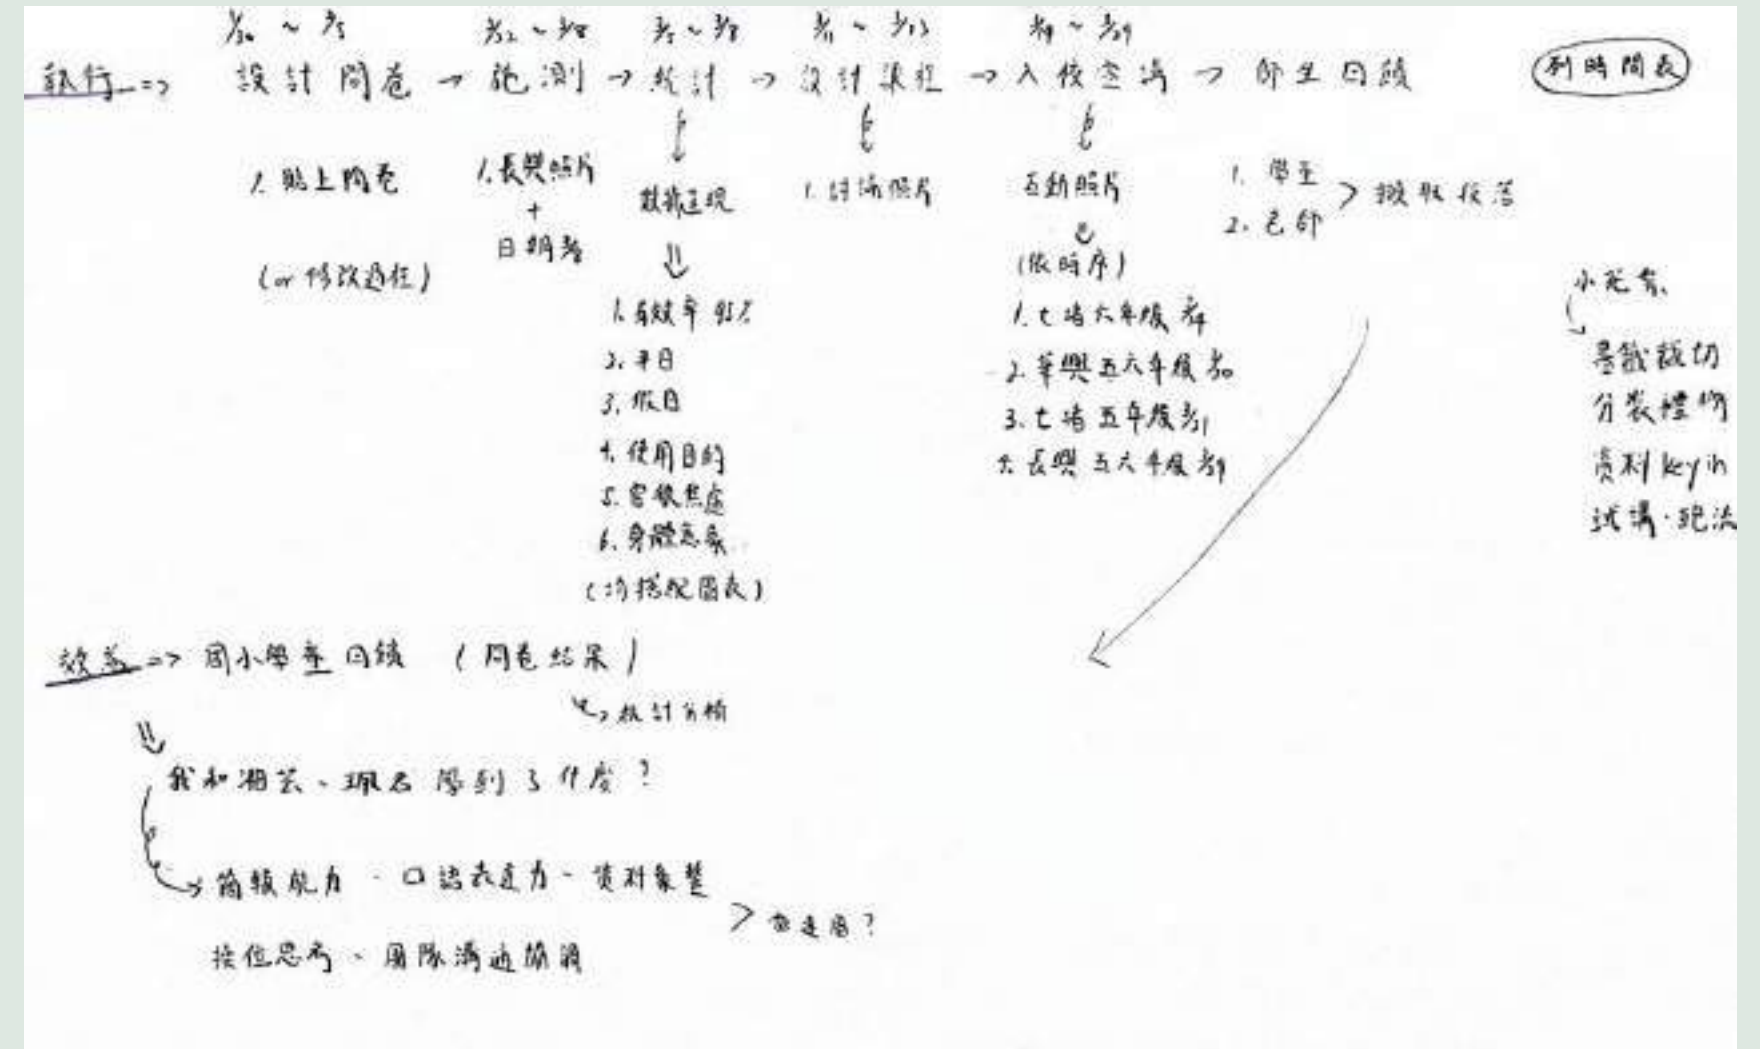 執行 => 設計問卷 → 施測 → 統計 → 設計課程 → 入校宣講 → 師生回饋
列時間表
1. 貼上問卷
(or 修改過程)
1. 長興照片
+
日期者
數據呈現
1. 有效率 95%
2. 平日
3. 假日
4. 使用目的
5. 容貌焦慮
6. 身體意象
(均搭配圖表)
1. 討論照片
互動照片
(依時序)
1. 七堵六年級
2. 華興五六年級
3. 七堵五年級
4. 長興五六年級
1. 學生
2. 老師
> 擷取
小花絮
墨截裁切
分裝禮物
資料 key in
試講、跑流
效益 => 國小學生回饋 (問卷結果)
統計分析
我和湘芸、珮名學到了什麼?
簡報能力、口語表達力、資料彙整
換位思考、團隊溝通協調
> 雷達圖?